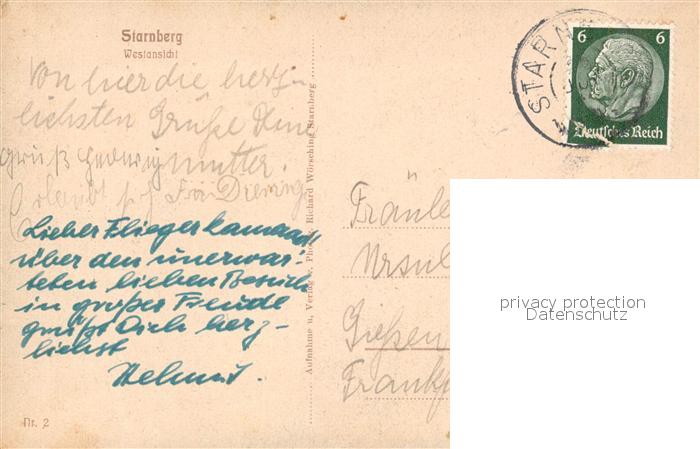 Starnberg
Westansicht
Von hier die herz-
lichsten Grüße Deine
Gruß Hedwig mutter.
Lieber Fliegerkamerad!
über den unerwar-
teten lieben Besuch
in großer Freude
grüßt Dich herz-
lichst
Helmut.
Nr. 2
Aufnahme u. Verlag v. Phot. Richard Wörsching Starnberg
STARN
6 6
Deutsches Reich
Fräule
Ursul
Gießen
Frankf
privacy protection
Datenschutz